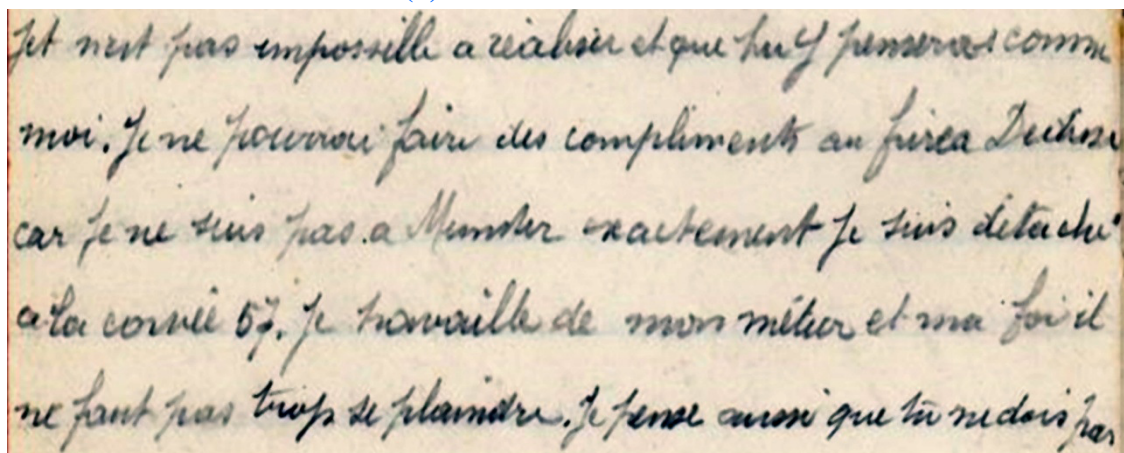 jet n'est pas impossible a réaliser et que tu y penseras comme
moi. Je ne pourrai faire des compliments au
car je ne suis pas a Munster exactement je suis détaché
a la corvée 57. je travaille de mon métier et ma foi il
ne faut pas trop se plaindre. je pense aussi que tu ne dois pas